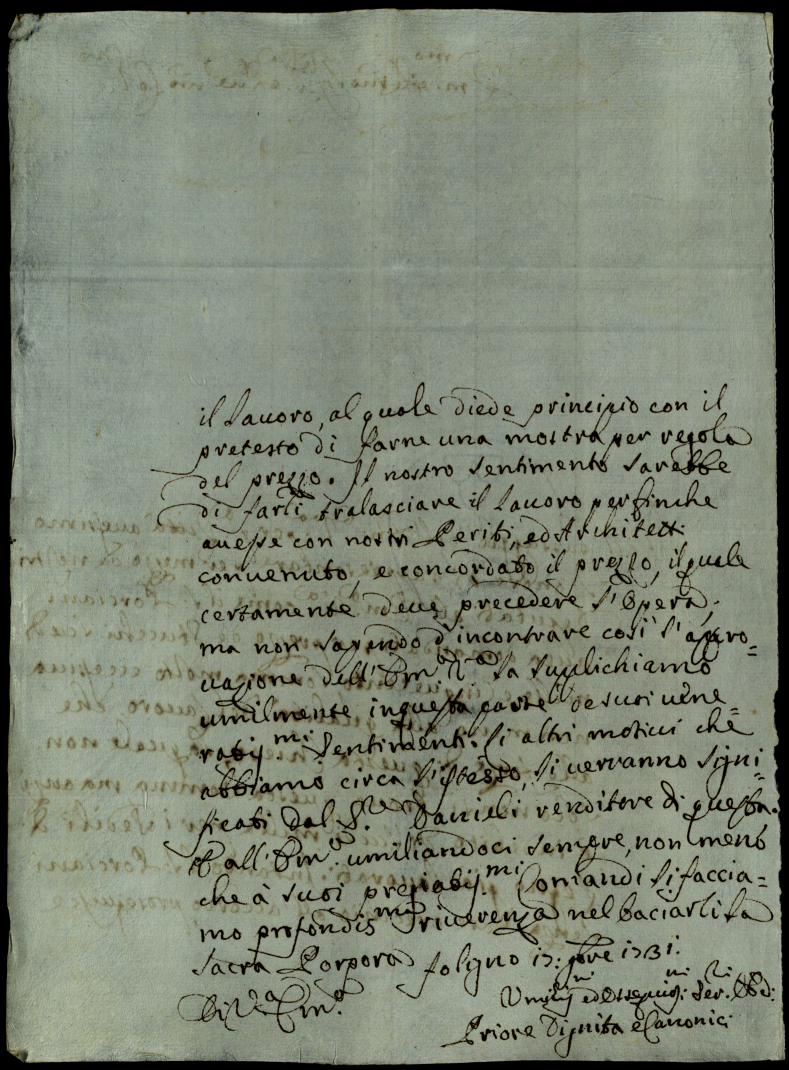 il lauoro, al quale diede principio con il
pretesto di farne una mostra per regola
del prezzo. Il nostro sentimento sarebbe
di farli tralasciare il lauoro perfinche
auesse con nostri Periti, ed Architetti
conuenuto, e concordato il prezzo, il quale
certamente deue precedere l'Opera;
ma non sapendo d'incontrare così l'appro=
uazione dell'Em.ᵃ V.ᵃ La supplichiamo
umilmente in questa parte de suoi uene=
rabij.ᵐⁱ Sentimenti. Li altri motiui che
abbiamo circa l'istesso, li uerranno signi=
ficati dal S.ʳᵉ Danieli renditore di questa.
E all'Em.ᵃ umiliandoci sempre, non meno
che à suoi pregiabij.ᵐⁱ Comandi Li faccia=
mo profondis.ᵐᵃ riuerenza nel baciarli la
Sacra Porpora Foligno 17: 1731.
Di V.ᵃ Em.ᵃ
Umij.ᵐⁱ ed Ossequios.ᵐⁱ Ser.ʳⁱ
Priore Dignita e Canonici